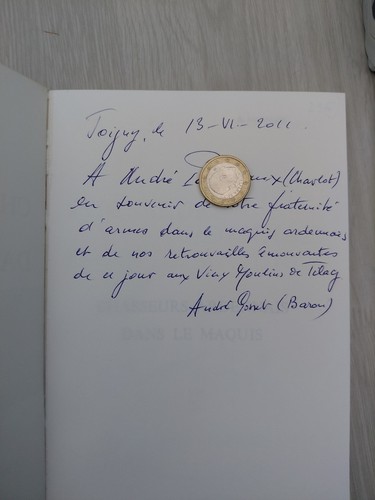 Joigny, le 13-VI-2011
A André L ux (Charlot)
en souvenir de notre fraternité
d'armes dans le maquis ardennais
et de nos retrouvailles émouvantes
de ce jour aux Vieux Moulins de Thilay
André (Baron)
DANS LE MAQUIS